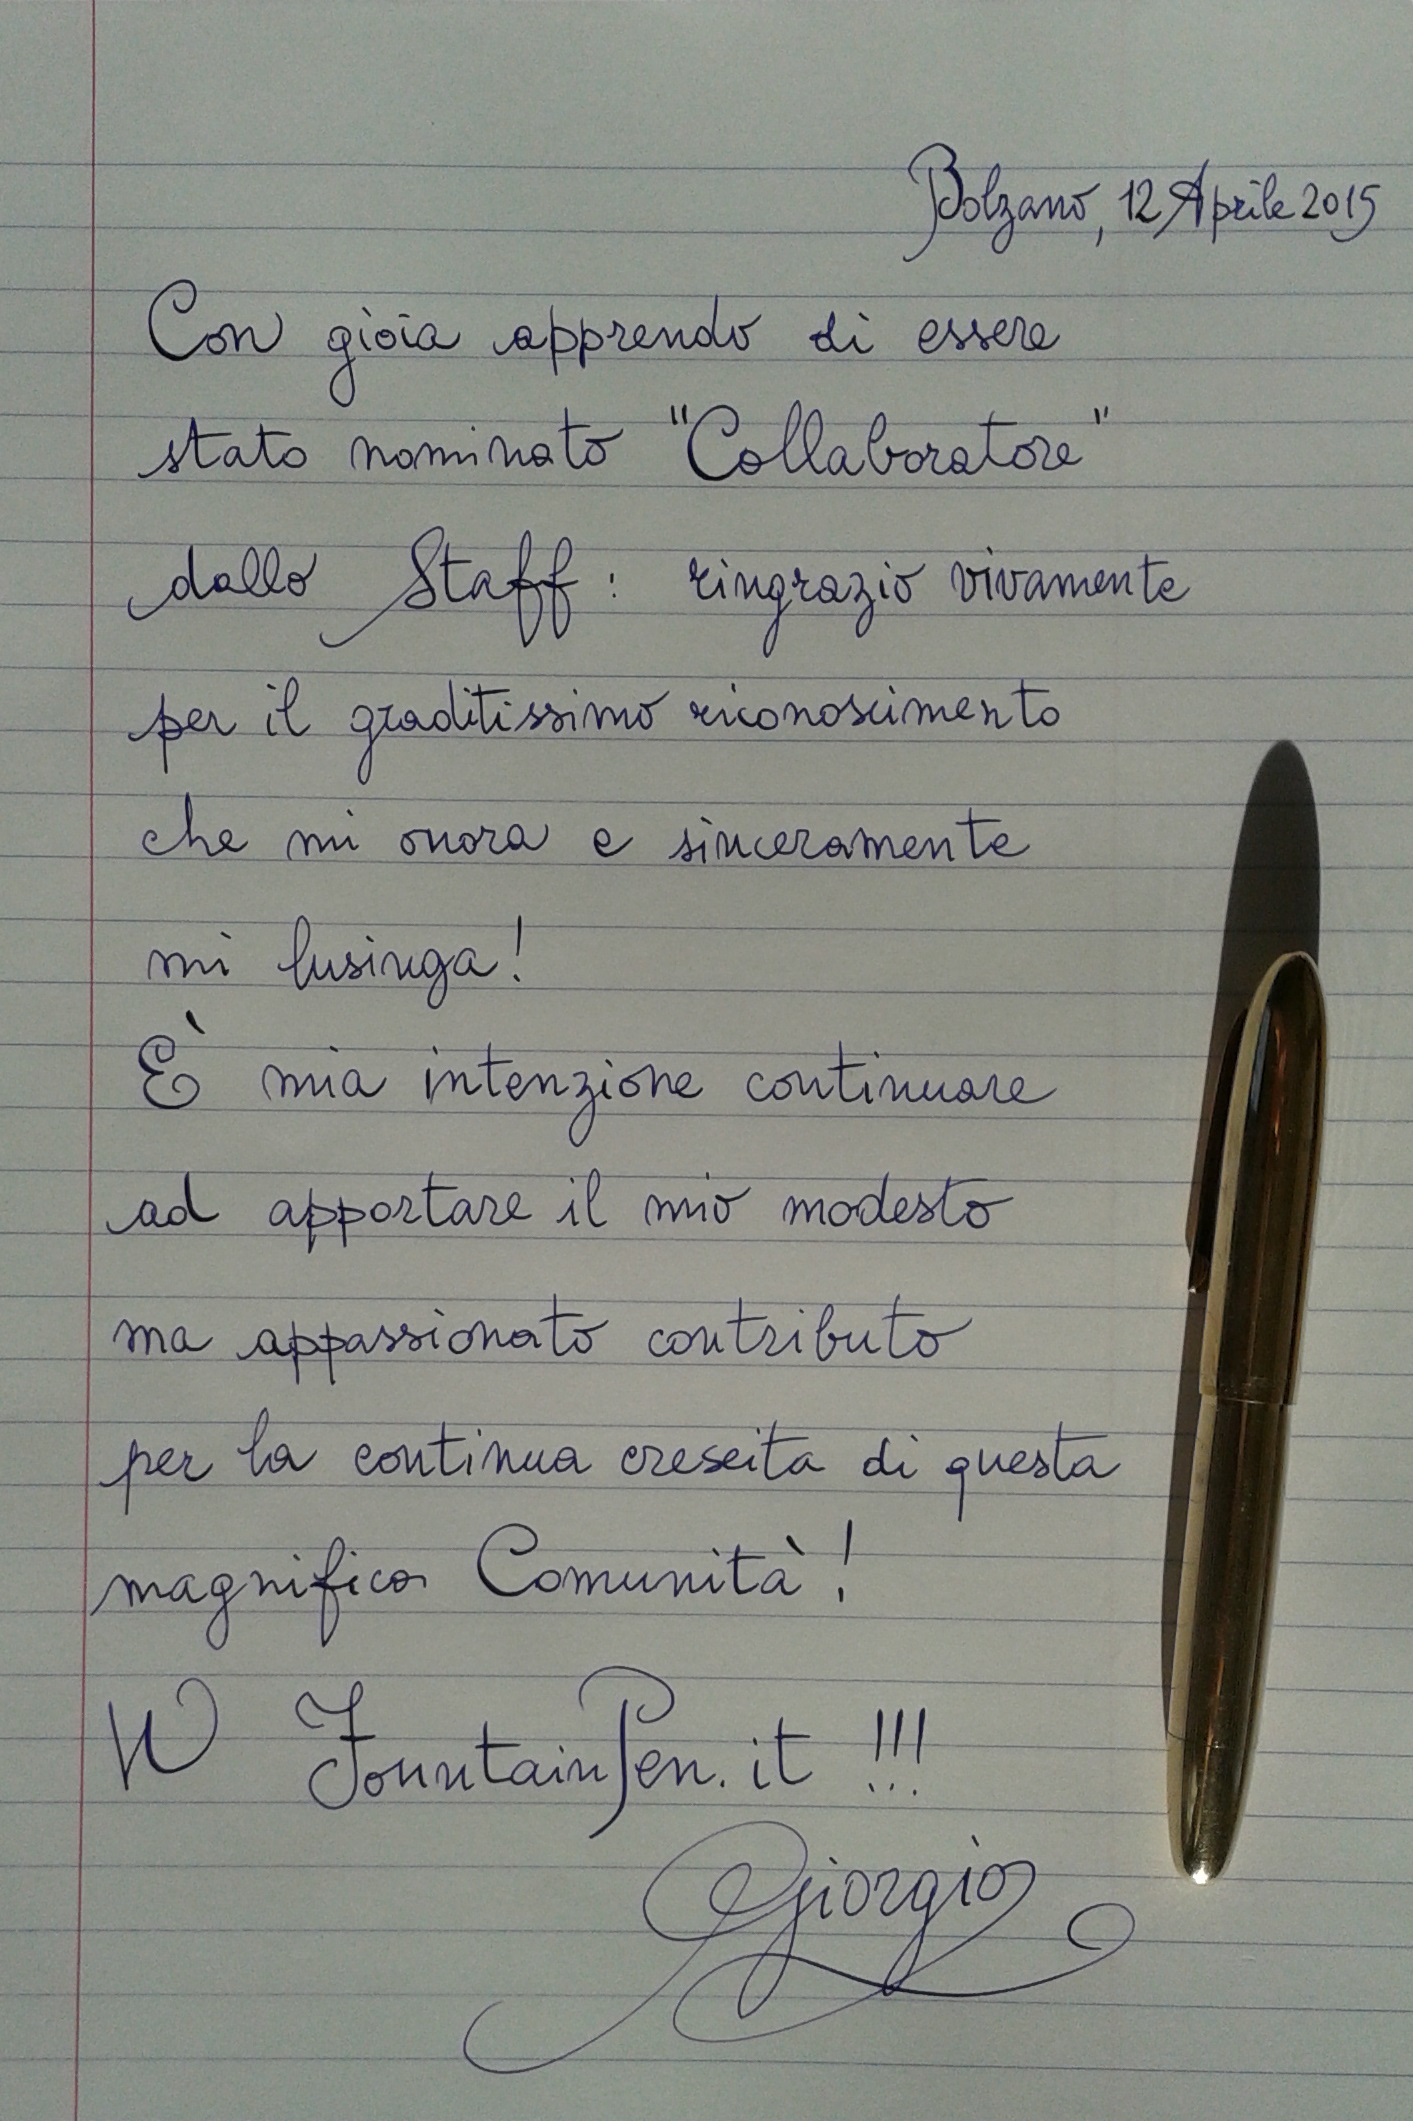 Bolzano, 12 Aprile 2015
Con gioia apprendo di essere
stato nominato "Collaboratore"
dallo Staff: ringrazio vivamente
per il graditissimo riconoscimento
che mi onora e sinceramente
mi lusinga!
È mia intenzione continuare
ad apportare il mio modesto
ma appassionato contributo
per la continua crescita di questa
magnifica Comunità!
W FountainPen.it !!!
Giorgio